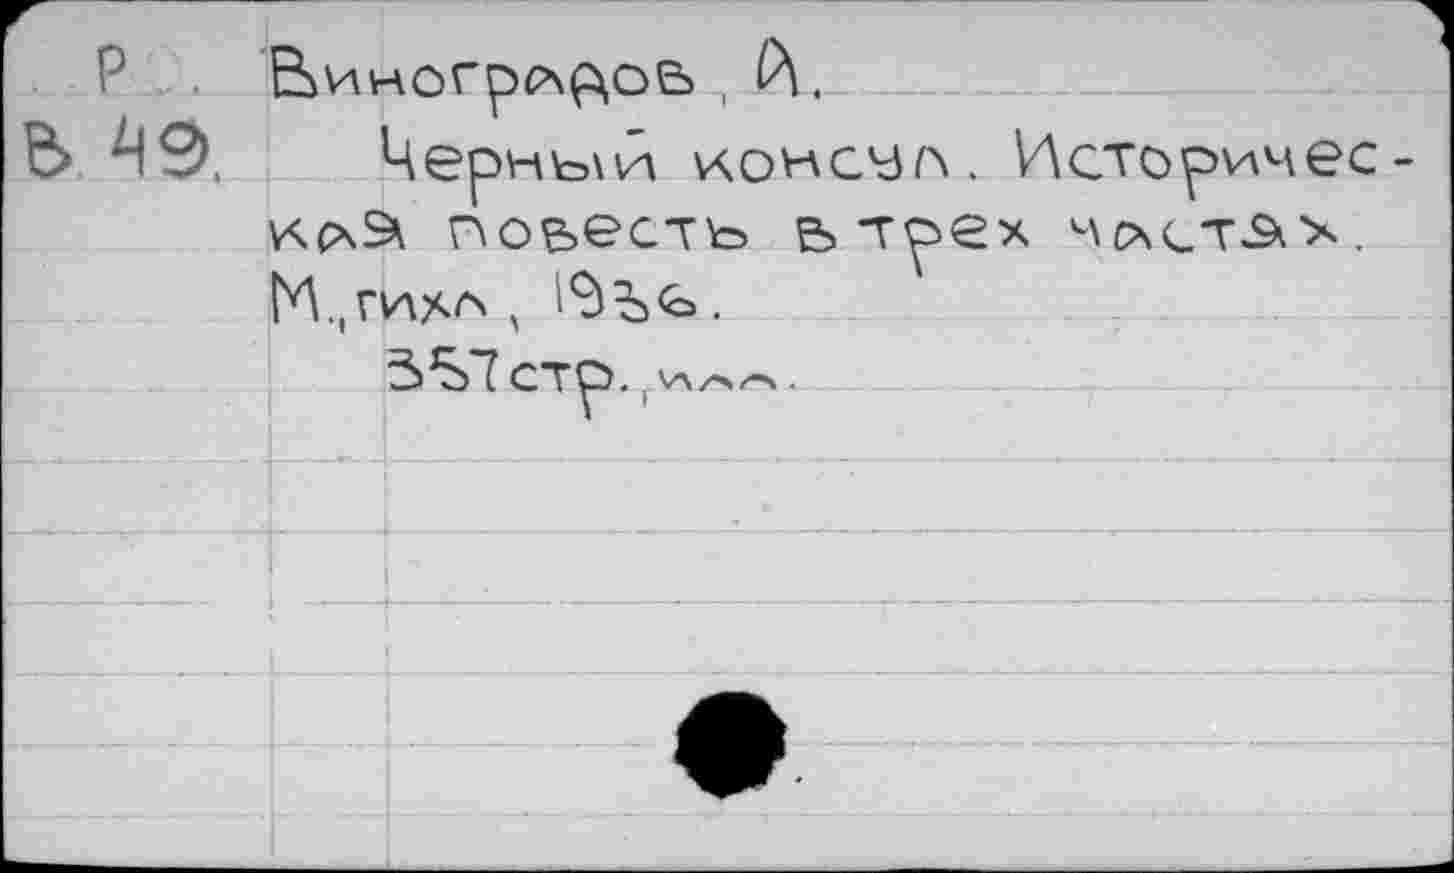 Р. Виноградов, А.
В 49. Черный консул. Историчес-
кая повесть в трех частях.
М., гихл, 1936.
357 стр., илл.